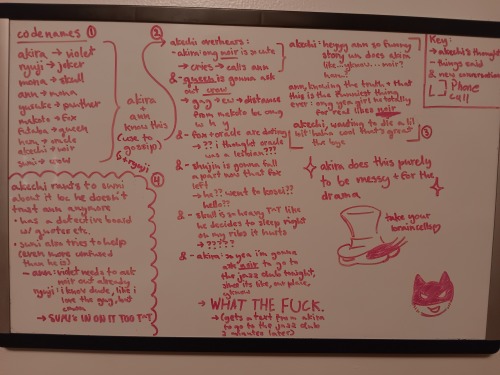 codenames ①
akira → violet
ryuji → joker
mona → skull
ann → mona
yusuke → panther
makoto → fox
futaba → queen
haru → oracle
akechi → noir
sumi → crow
akira
+
ann
know this
(use to
gossip)
+ ryuji
②
akechi overhears:
- akira: omg noir is so cute
→ cries → calls ann
& - queen is gonna ask
out crow
→ guy → ew → distance
from makoto be omg
w h y
& - fox + oracle are dating
→ ?? i thought oracle
was a lesbian???
& - shujin is gonna fall
apart now that
left
→ he?? went to kosei??
hello??
& - skull is so heavy TnT like
he decides to sleep right
on my ribs it hurts
→ ?????
& - akira: so yea i'm gonna
ask noir to go to
the jazz club tonight,
since its like, our place,
yknow
→ WHAT THE FUCK.
→ (gets a text from akira
to go to the jazz club
2 minutes later)
akechi: heyyy ann so funny
story um does akira
like...yknow... noir?
haru?
ann, knowing the truth + that
this is the funniest thing
ever: omg yea girl he totally
for real likes noir
akechi, wanting to die a lil
bit: haha cool that's great
thx bye
③
Key:
→ akechi's thoughts
- things said
& new conversation
[ ] Phone
call
akira does this purely
to be messy + for the
drama
take your
braincells
④
akechi runs to sumi
about it bc he doesn't
trust ann anymore
• has a detective board
w/ quotes etc.
• sumi also tries to help
(even more confused
than he is)
- ann: violet needs to ask
noir out already
ryuji: i know dude, like i
love the guy, but
→ SUMI'S IN ON IT TOO TnT